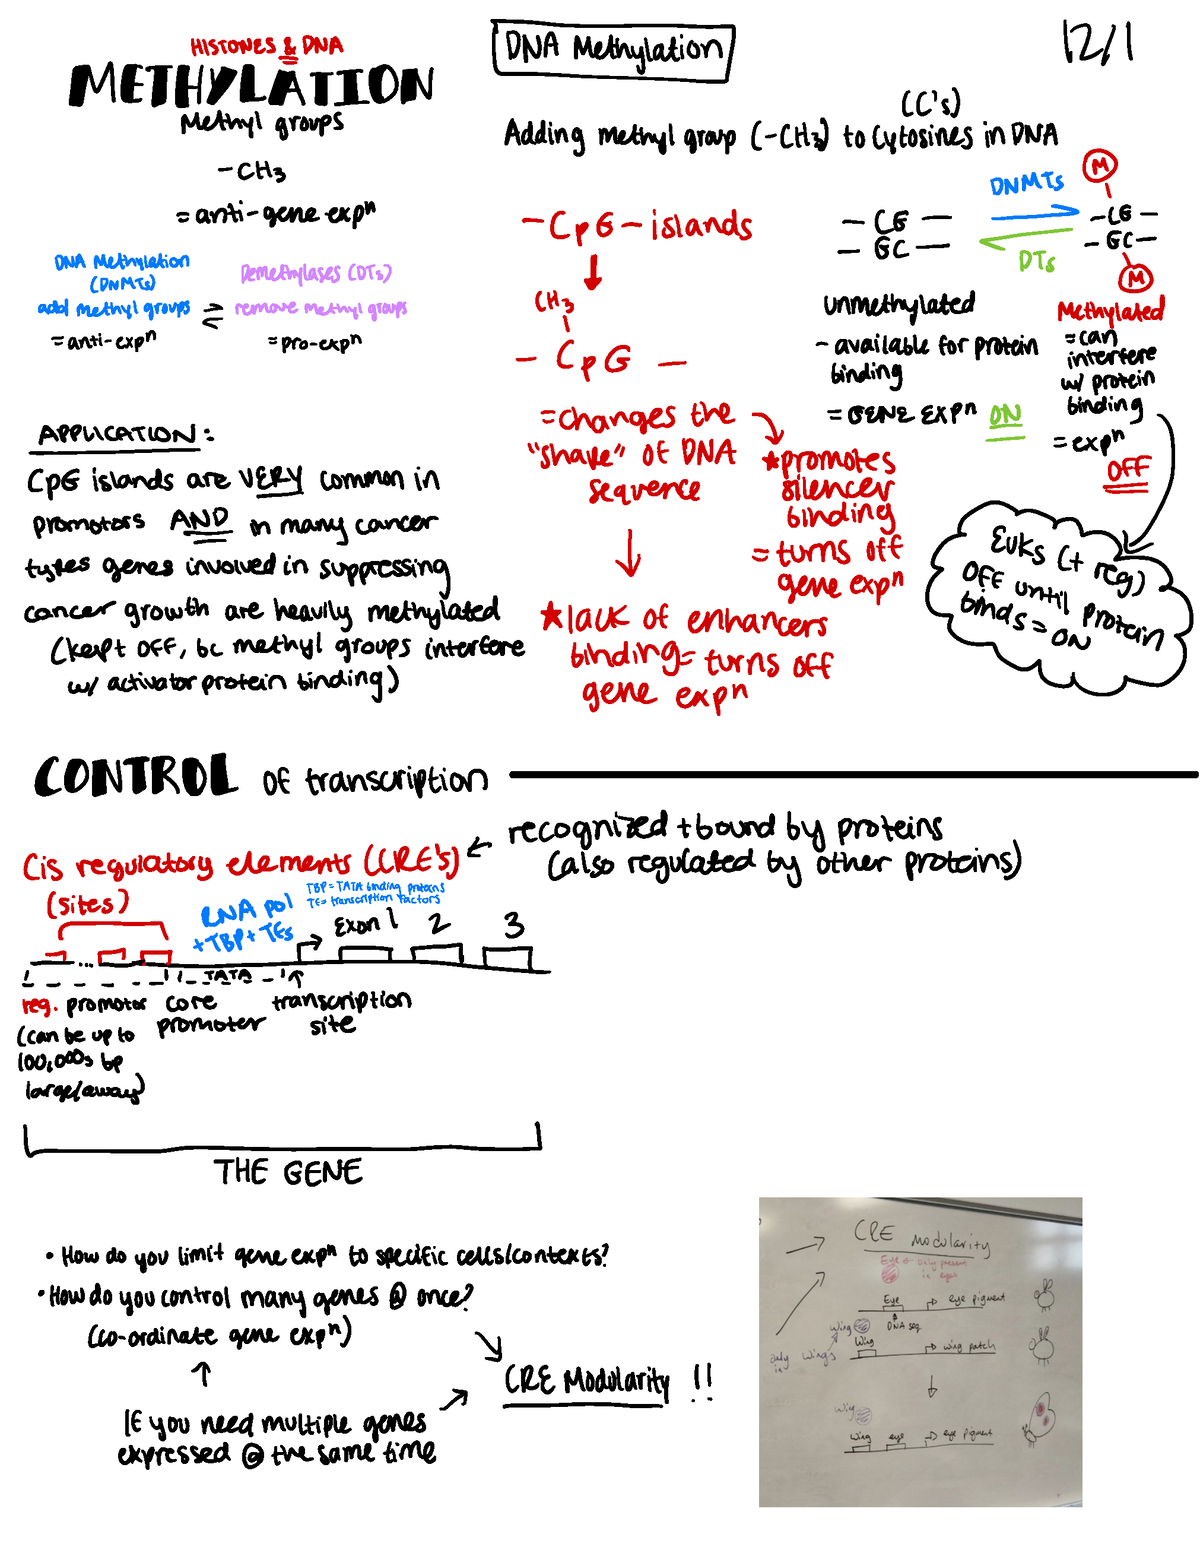 HISTONES & DNA
METHYLATION
Methyl groups
-CH3
= anti-gene expⁿ
DNA Methylation
(DNMTs)
add methyl groups
= anti-expⁿ
Demethylases (DTs)
remove methyl groups
= pro-expⁿ
APPLICATION:
CpG islands are VERY common in
promotors AND in many cancer
types genes involved in suppressing
cancer growth are heavily methylated
(kept OFF, bc methyl groups interfere
w/ activator protein binding)
DNA Methylation
12/1
(C's)
Adding methyl group (-CH3) to Cytosines in DNA
-CpG-islands
CH3
- CpG -
= changes the
"shape" of DNA
sequence
★promotes
silencer
binding
= turns off
gene expⁿ
★lack of enhancers
binding = turns off
gene expⁿ
- CG -
- GC -
DNMTs
DTs
M
-CG-
-GC-
M
unmethylated
- available for protein
binding
= GENE EXPⁿ ON
Methylated
= can
interfere
w/ protein
binding
= expⁿ
OFF
Euks (+ reg)
OFF until protein
binds = ON
CONTROL of transcription
Cis regulatory elements (CRE's)
recognized + bound by proteins
(also regulated by other proteins)
(sites)
RNA pol
+TBP+TFs
TBP = TATA binding proteins
TF = transcription factors
Exon 1 2 3
... TATA
reg. promotor
(can be up to
100,000s bp
large/away)
core
promoter
transcription
site
THE GENE
• How do you limit gene expⁿ to specific cells/contexts?
• How do you control many genes @ once?
(co-ordinate gene expⁿ)
IF you need multiple genes
expressed @ the same time
CRE Modularity !!
CRE modularity
Eye only present
in eyes
Eye eye pigment
DNA seq
Wing
only wings
in
Wing wing patch
Wing
Wing eye eye pigment